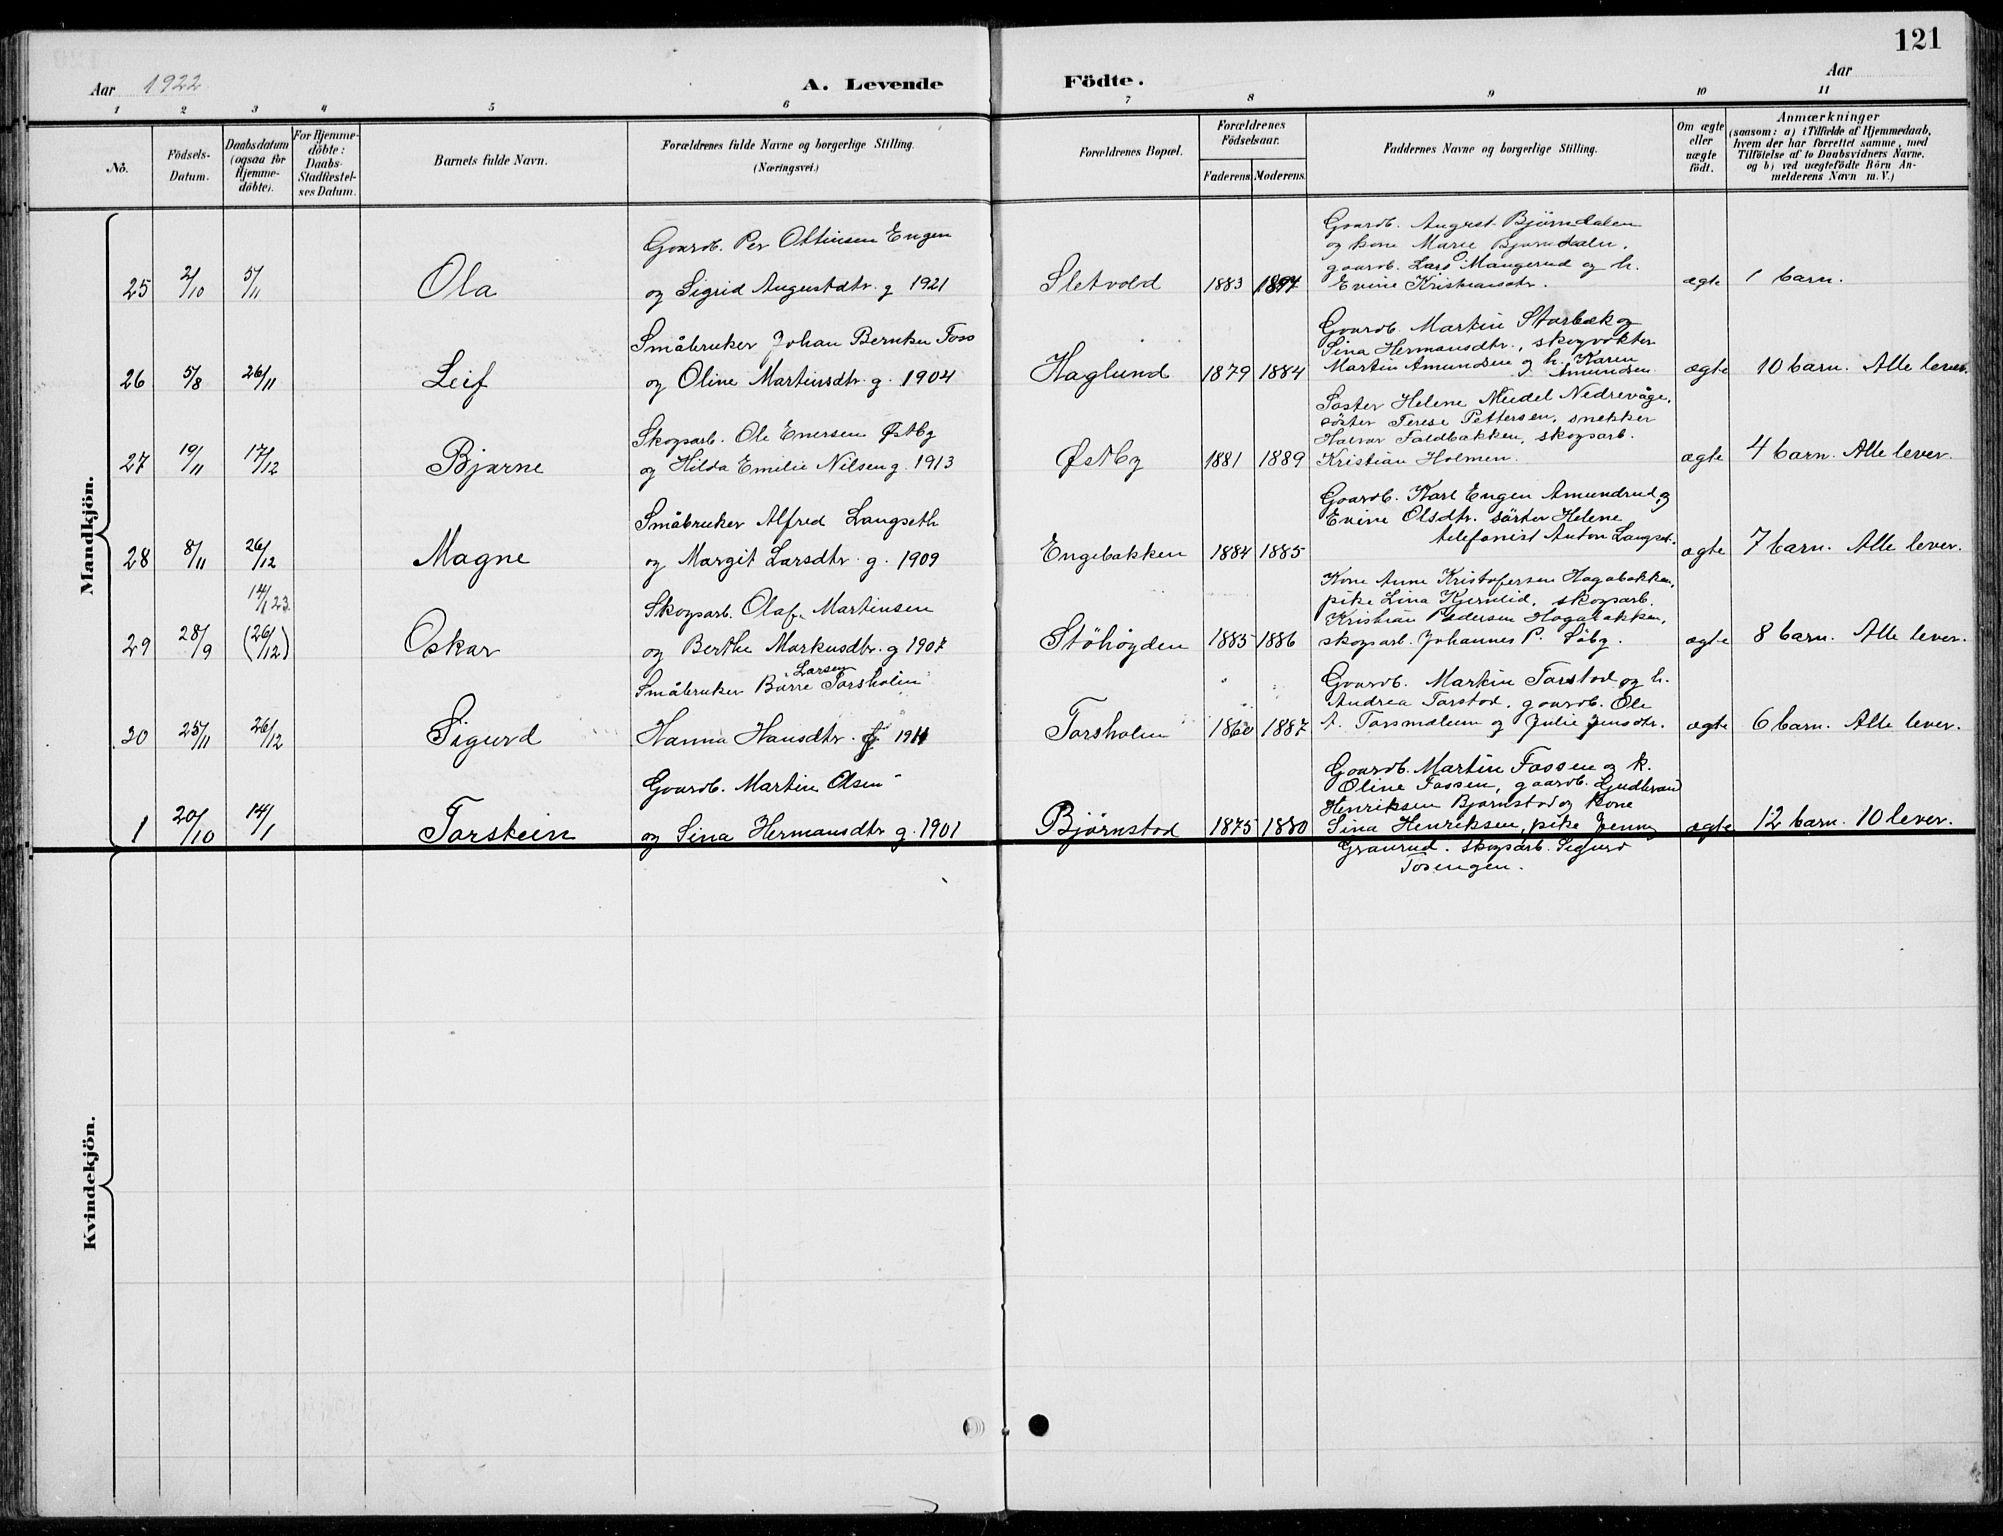 121
Aar 1922
A. Levende Födte.
Aar
1 2 3 4 5 6 7 8 9 10 11
No.
Födsels-Datum.
Daabsdatum (ogsaa for Hjemme-döbte).
For Hjemme-döbte: Daabs-Stadfæstel-ses Datum.
Barnets fulde Navn.
Forældrenes fulde Navne og borgerlige Stilling.
(Næringsvei.)
Forældrenes Bopæl.
Forældrenes Födselsaar.
Faderens. Moderens.
Faddernes Navne og borgerlige Stilling.
Om ægte eller uægte födt.
Anmærkninger
(saasom: a) i Tilfælde af Hjemmedaab,
hvem der har forrettet samme, med
Tilföielse af to Daabsvidners Navne.
og b) ved uægtefödte Börn An-
melderens Navn m. V.)
Mandkjön.
Gaardb. Per Ottinsen Engen
Gaardb. August Bjørndalen
og kone Marie Bjørndalen,
gaardb. Lars Mangerud og h.
25 2/10 5/11 Ola og Sigrid Augustdtr. g 1921 Sletvold 1883 1897 Evine Kristiansdtr. ægte 1 barn.
Småbruker Johan Berntsen Foss
Gaardb. Martin Starbæk og
Sina Hermansdtr., skogvokter
26 5/8 26/11 Leif og Oline Martinsdtr. g. 1904 Haglund 1879 1884 Martin Amundsen og h. Karen Amundsen. ægte 10 barn. Alle lever.
Skogsarb. Ole Enersen Østby
Søster Helene Meidel Nedrevåge,
söster Terese Pettersen, snekker
Halvor Foldbakken, skogsarb.
27 19/11 17/12 Bjarne og Hilda Emilie Nilsen g. 1913 Østby 1881 1889 Kristian Holmen. ægte 4 barn. Alle lever.
Småbruker Alfred Langseth
Gaardb. Karl Engen Amundrud og
Evine Olsdtr. söster Helene
telefonist Anton Langset.
28 8/11 26/12 Magne og Margit Larsdtr. g. 1909 Engebakken 1884 1885 ægte 7 barn. Alle lever.
14/1 23.
Skogsarb. Olaf Martinsen
Kone Anne Kristofersen Hagabakken,
pike Lina Kjernlid, skogsarb.
Kristian Pedersen Hagabakken,
29 28/9 (26/12) Oskar og Berthe Markusdtr. g 1907 Stöhögden 1885 1886 skogsarb. Johannes P. Søby. ægte 8 barn. Alle lever.
Larsen
Småbruker Børre Torsholm
Gaardb. Martin Torstad og h.
Andrea Torstad, gaardb. Ole
30 25/11 26/12 Sigurd Hanna Hansdtr. g 1911 Torsholm 1860 1887 A. Torsmælum og Julie Jensdtr. ægte 6 barn. Alle lever.
Gaardb. Martin Olsen
Gaardb. Martin Fossen og k.
Oline Fossen, gaardb. Gudbrand
Henriksen Bjørnstad og kone
1 20/10 14/1 Torstein og Sina Hermansdtr g. 1901 Björnstad 1875 1880 Sina Henriksen, pike Jenny ægte 12 barn. 10 lever.
Granrud. skogsarb. Sigurd
Tosengen.
Kvindekjön.